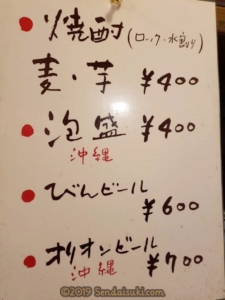 • 焼酎(ロック・水割り)
麦・芋 ¥400
• 泡盛 ¥400
沖縄
• びんビール
¥600
• オリオンビール
沖縄 ¥700
©2019 Sendaisuki.com